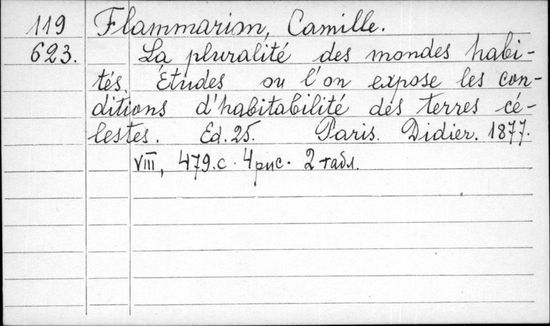 119 Flammarion, Camille.
623. La pluralité des mondes habi-
tés. Études ou l'on expose les con-
ditions d'habitabilité des terres cé-
lestes. Ed. 25. Paris. Didier. 1877.
VIII, 479.c. 4 рис. 2 табл.